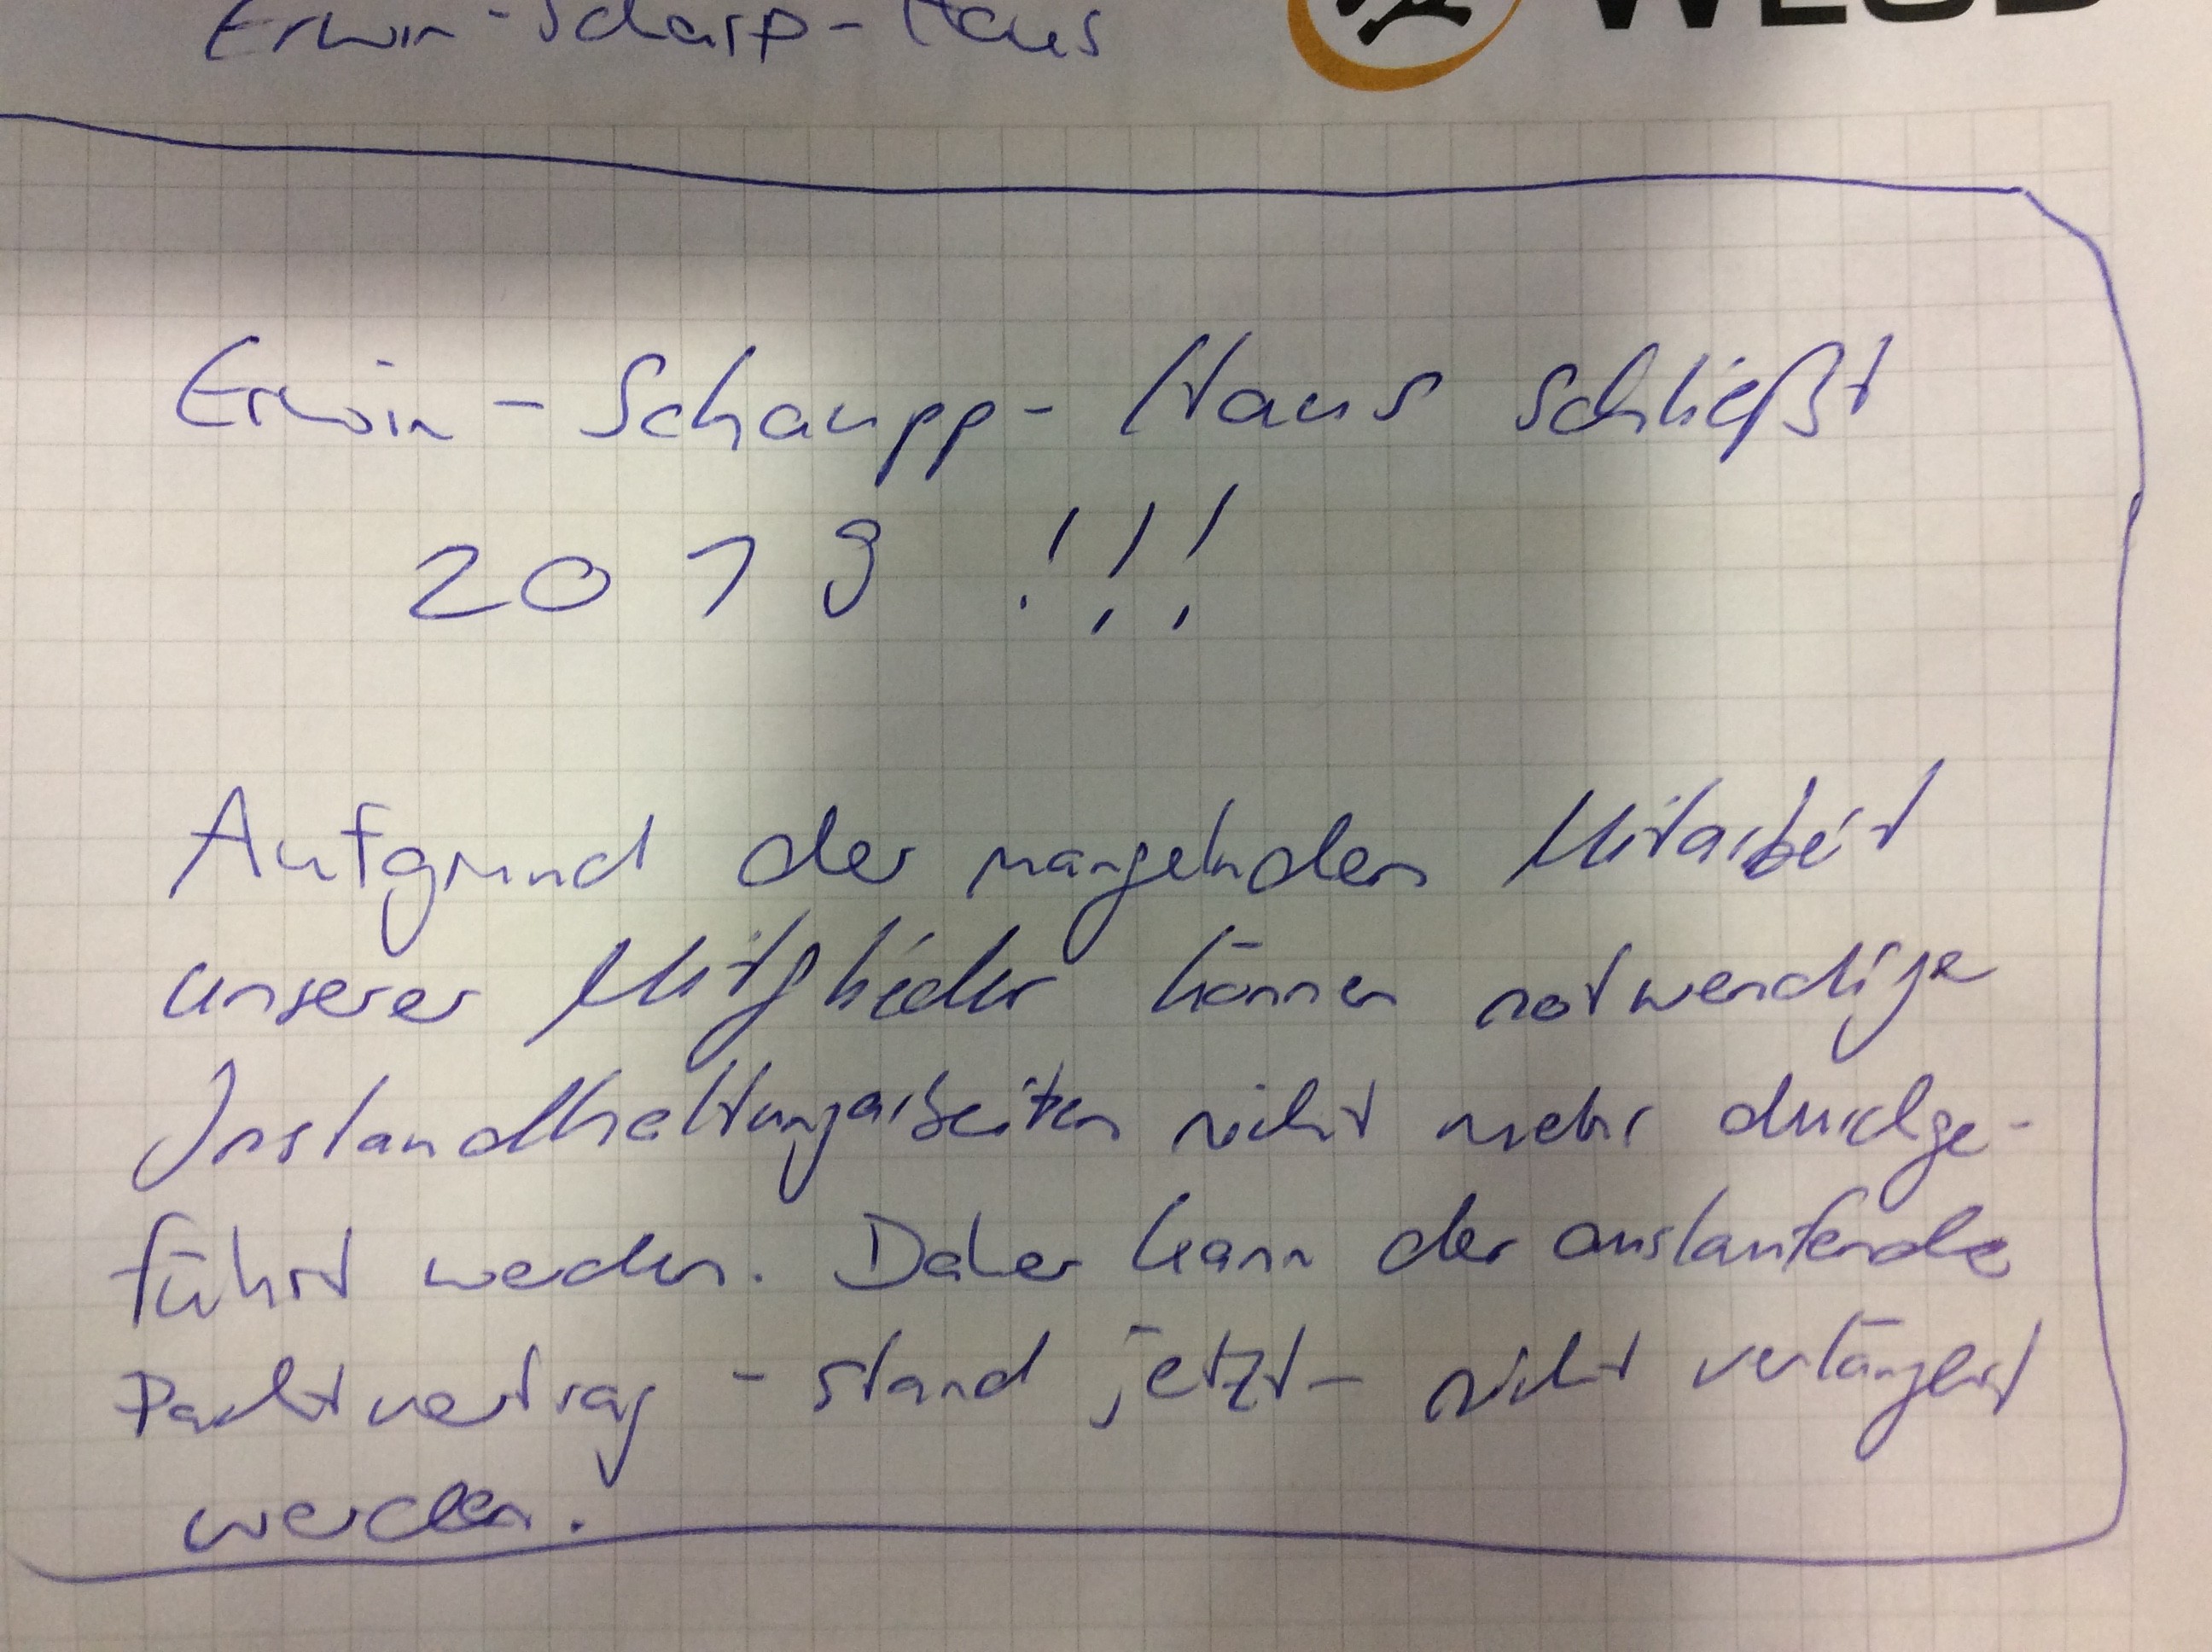 Erwin-Scharp-Haus
Erwin-Schaupp-Haus schließt
2019 !!!
Aufgrund der mangelnden Mitarbeit
unserer Mitglieder können notwendige
Instandhaltungarbeiten nicht mehr durchge-
führt werden. Daher kann der auslaufende
Pachtvertrag - stand jetzt - nicht verlängert
werden.